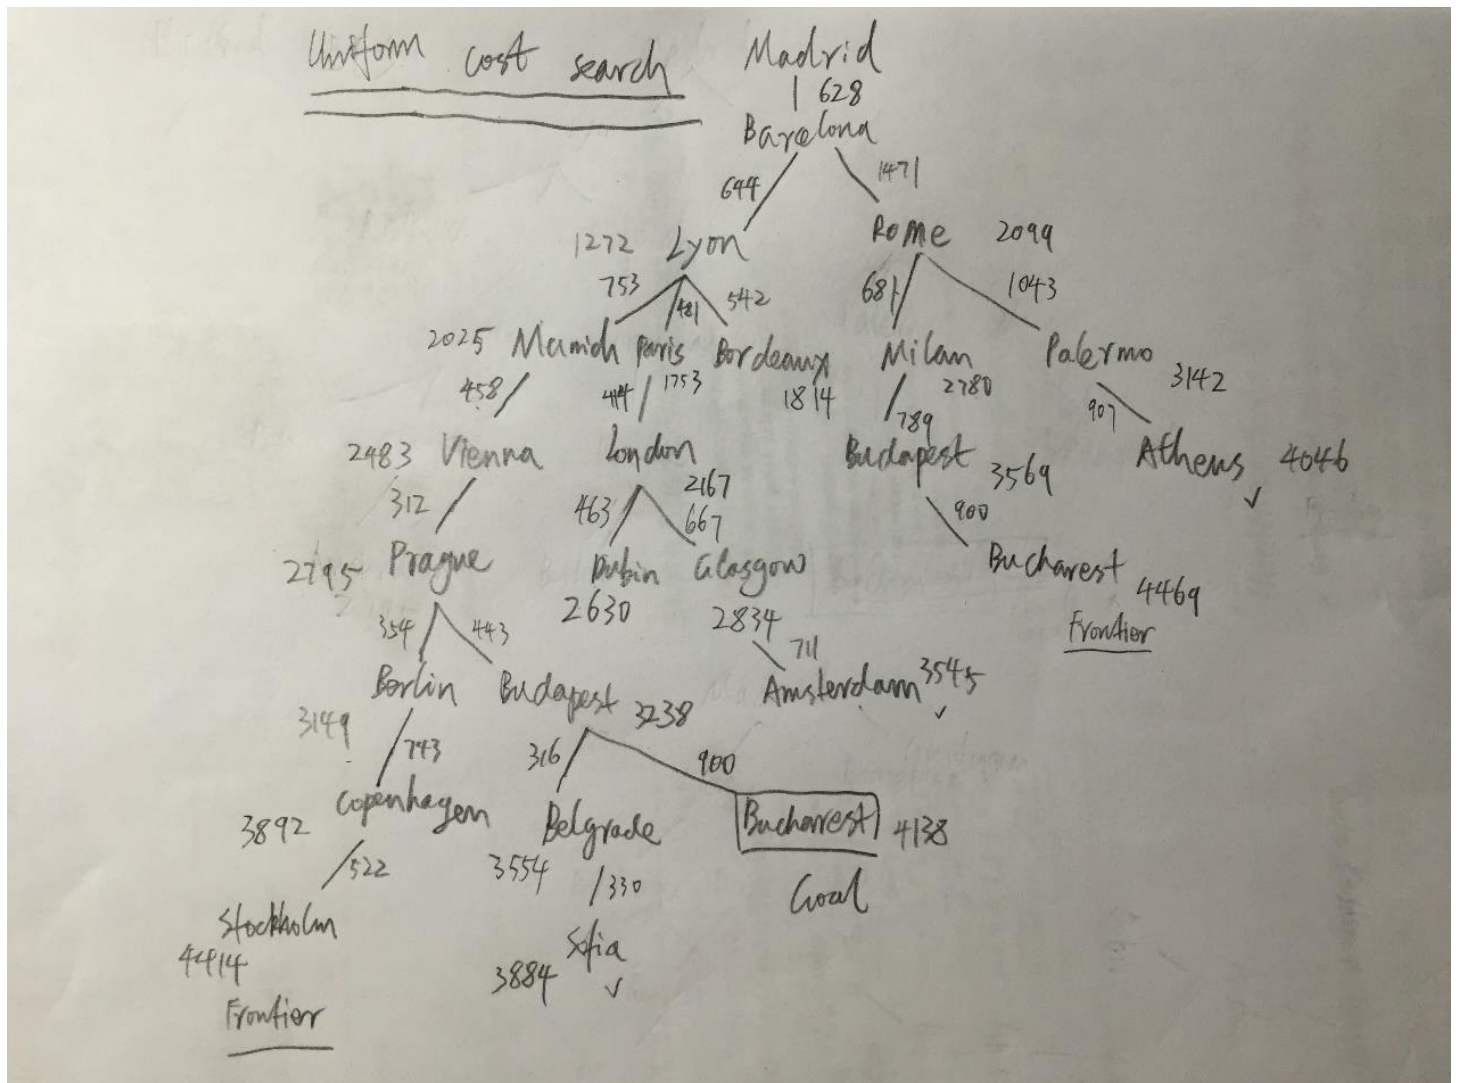 Uniform cost search
Madrid
628
Barcelona
644 1471
1272 Lyon Rome 2099
753 481 542 681 1043
2025 Munich Paris Bordeaux Milan Palermo
458 414 1753 1814 2780 3142
789 907
2483 Vienna London Budapest 3569 Athens 4046
312 463 2167 667 900
2795 Prague Dubin Glasgow Bucharest 4469
2630 2834 Frontier
354 443 711
Berlin Budapest 3238 Amsterdam 3545
3149 743 316 900
Copenhagen Belgrade Bucharest 4138
3892 522 3554 330 Goal
Stockholm Sofia
4414 3884
Frontier